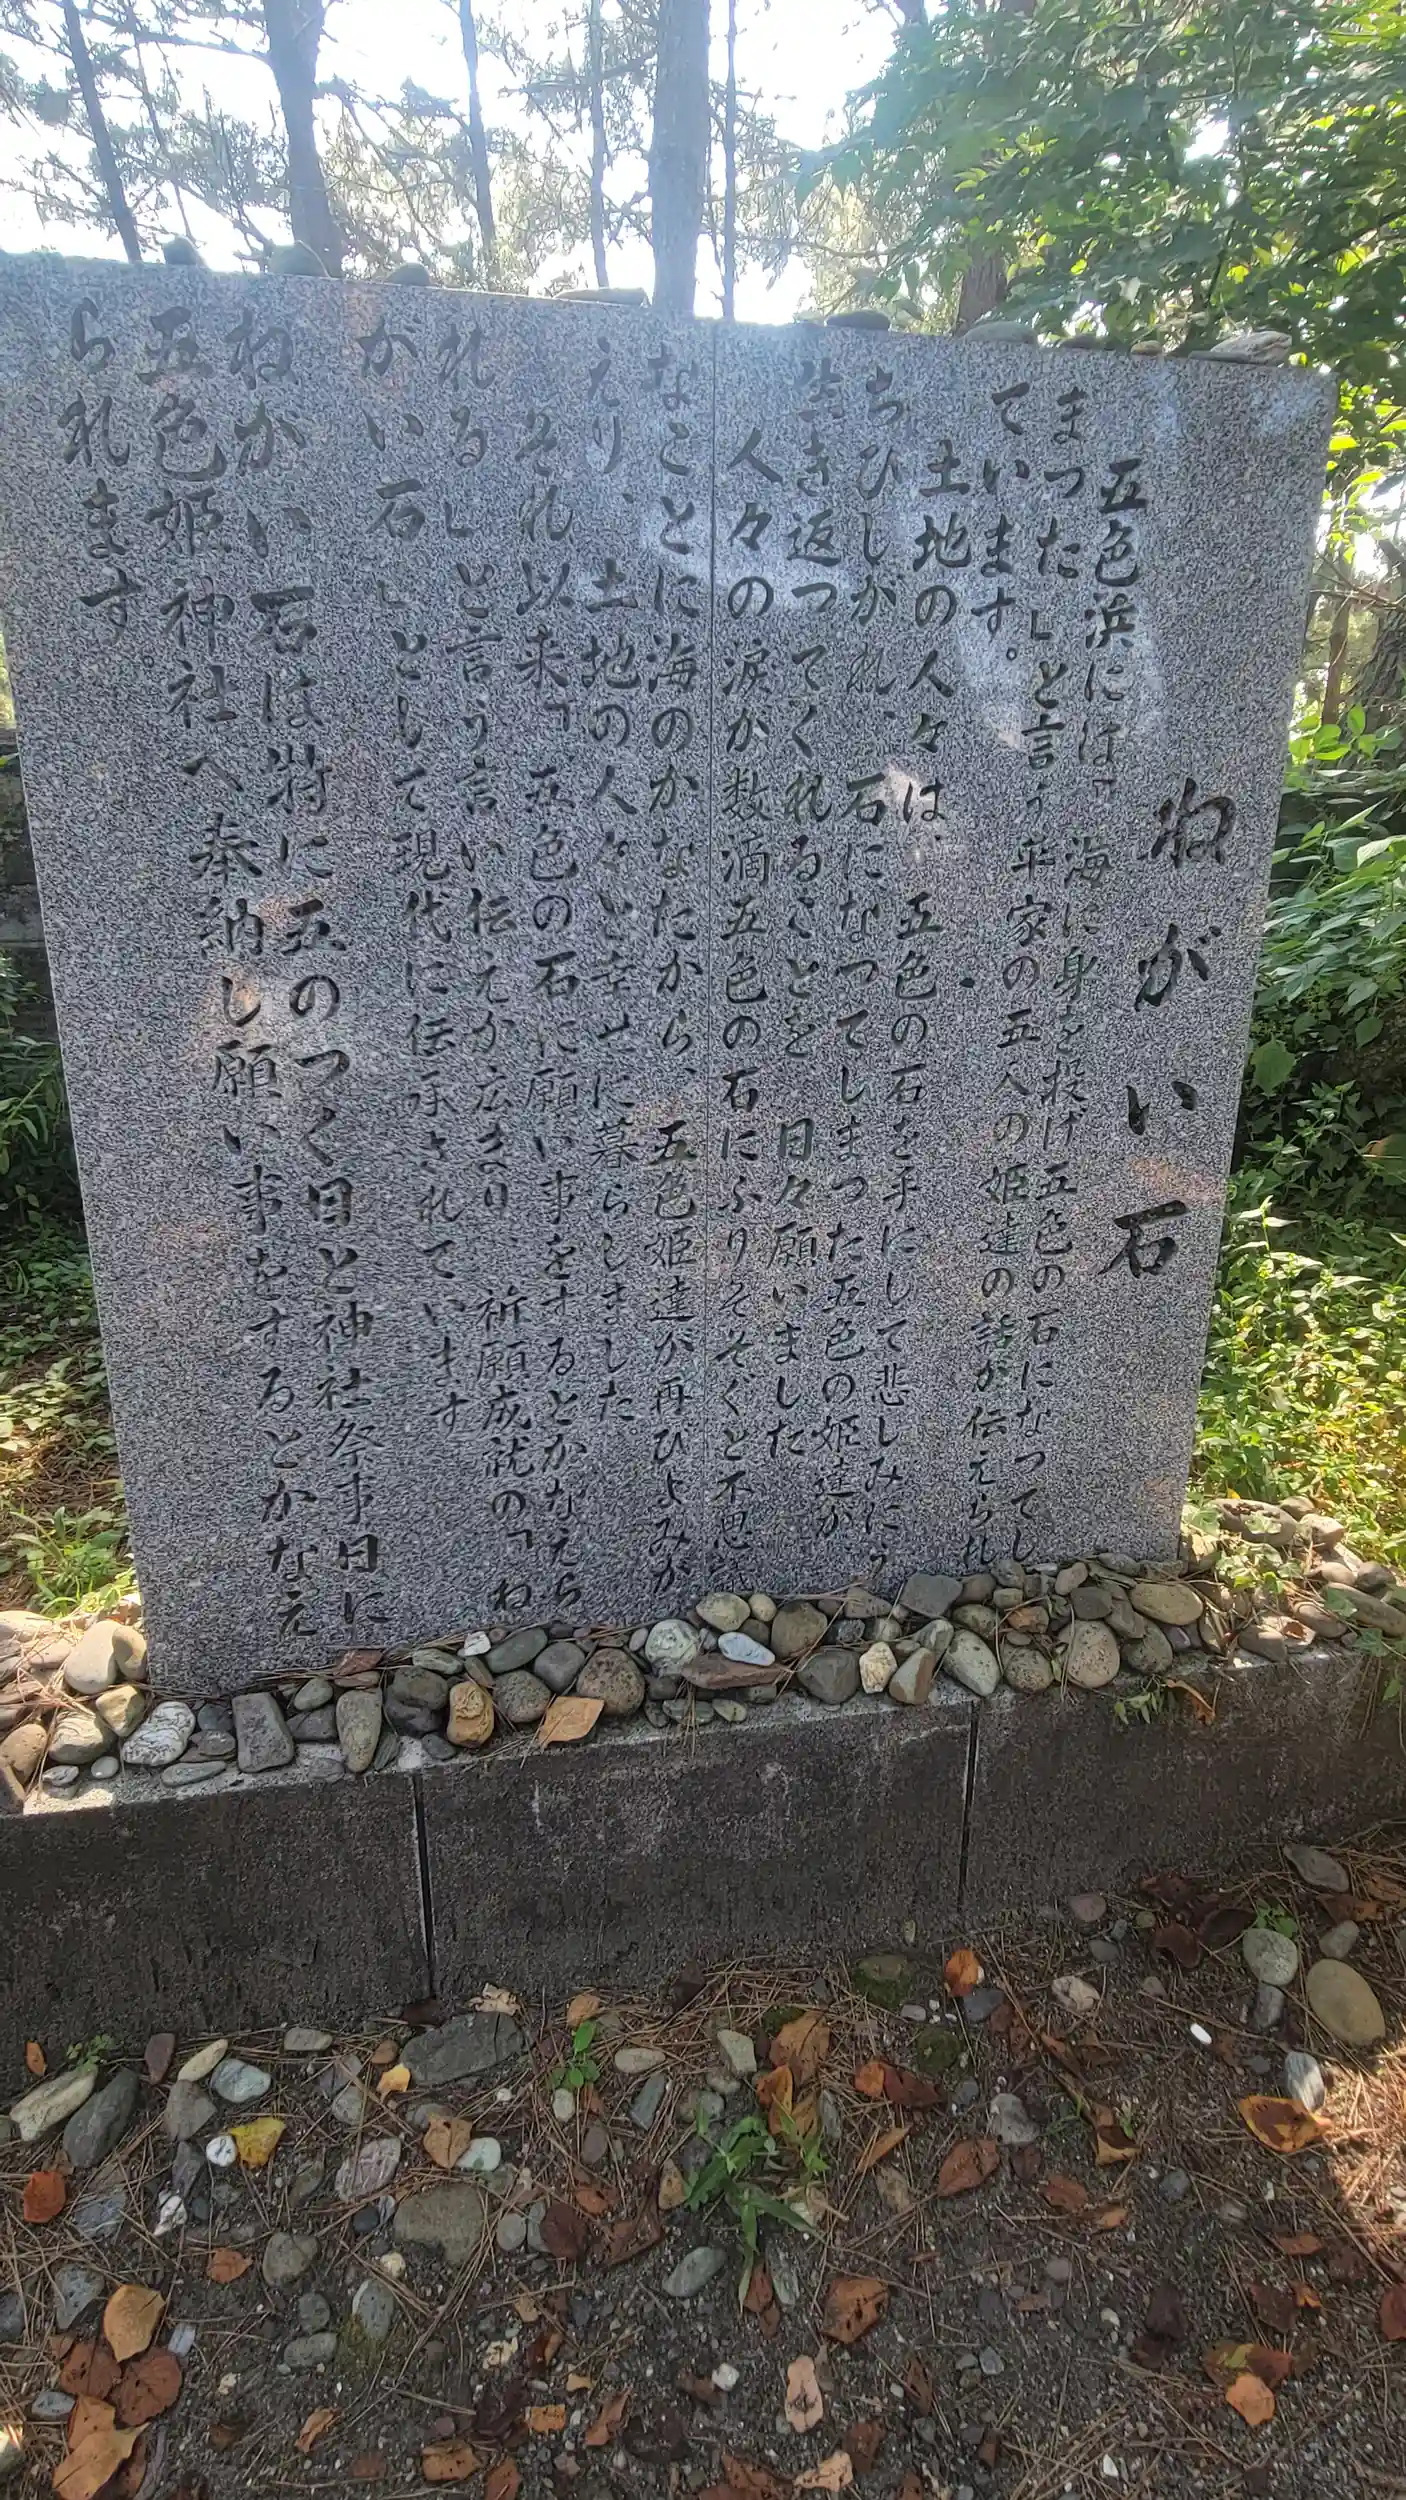 ねがい石
五色浜には「海に身を投げ五色の石になってし
まった」と言う平家の五人の姫達の話が伝えられ
ています。
土地の人々は、五色の石を手にして悲しみにう
ちひしがれ、石になってしまった五色の姫達が
生き返ってくれることを、日々願いました
人々の涙が数滴五色の石にふりそそぐと不思議
なことに海のかなたから、五色姫達が再びよみが
えり、土地の人々と幸せに暮らしました。
それ以来「五色の石に願い事をするとかなえら
れる」と言う言い伝えが広まり 祈願成就の「ね
がい石」として現代に伝承されています
ねがい石は特に五のつく日と神社祭事日に
五色姫神社へ奉納し願い事をするとかなえ
られます。